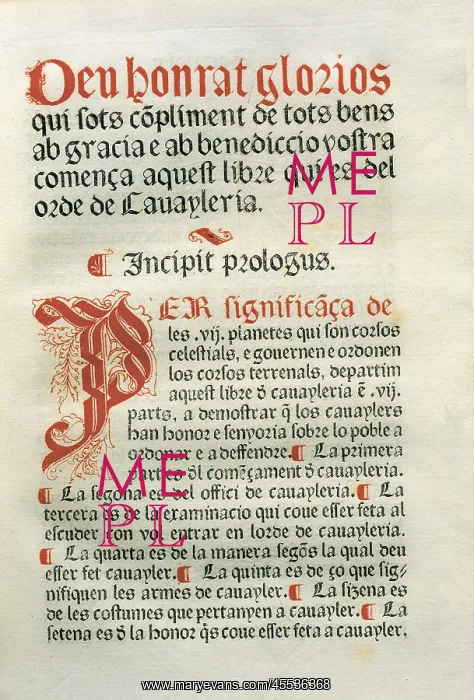 Deu honrat glorios
qui sots cõpliment de tots bens
ab gracia e ab benediccio vostra
comença aquest libre qui es del
orde de Cauayleria.
¶ Incipit prologus.
PER significãça de
les .vij. planetes qui son corsos
celestials, e gouernen e ordonen
los corsos terrenals, departim
aquest libre đ cauayleria ẽ .vij.
parts, a demostrar q̃ los cauaylers
han honor e senyoria sobre lo poble a
ordonar e a deffendre. ¶ La primera
partes đl comẽçament đ cauayleria.
¶ La segona es del offici de cauayleria. ¶ La
tercera es de la examinacio qui coue esser feta al
escuder con vol entrar en lorde de cauayleria.
¶ La quarta es de la manera segõs la qual deu
esser fet cauayler. ¶ La quinta es de ço que sig-
nifiquen les armes de cauayler. ¶ La sizena es
de les costumes que pertanyen a cauayler. ¶ La
setena es đ la honor q̃s coue esser feta a cauayler.
ME
PL
ME
PL
www.maryevans.com/45536368